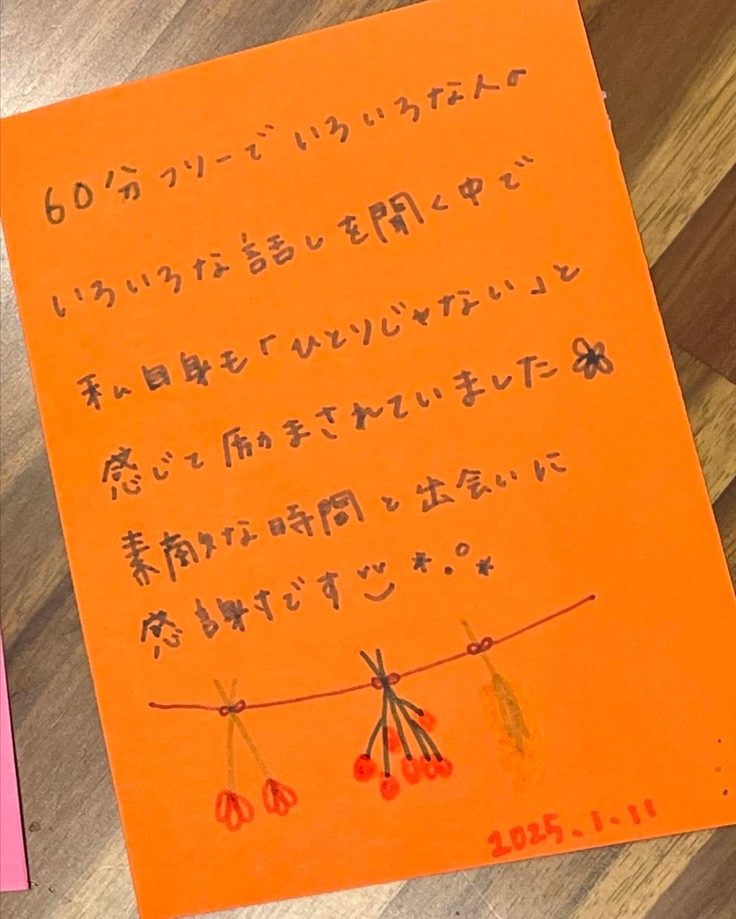 60分フリーでいろいろな人の
いろいろな話しを聞く中で
私自身も「ひとりじゃない」と
感じて励まされていました
素敵な時間と出会いに
感謝です
2025.1.11